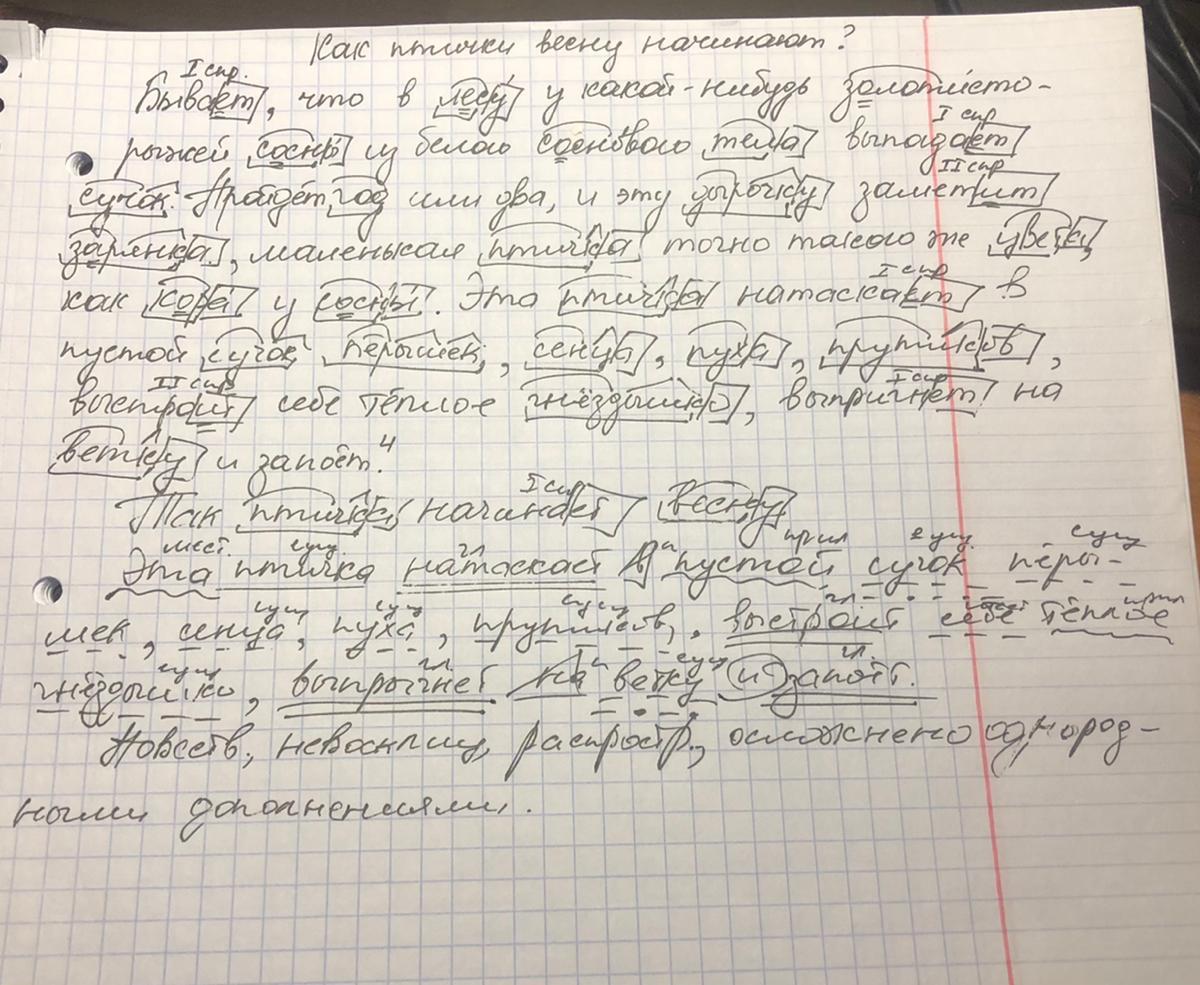 Как птички весну начинают?
I спр.
Бывает, что в лесу у какой-нибудь золотисто-
I спр
рыжей сосны из белого соснового тела выпадает
II спр
сучок. Пройдёт год или два, и эту дырочку заметит
зарянка, маленькая птичка точно такого же цвета,
I спр
как кора у сосны. Эта птичка натаскает в
пустой сучок перышек, сенца, пуха, прутиков,
II спр I спр
выстроит себе тёплое гнёздышко, выпрыгнет на
ветку и запоёт.4
I спр
Так птичка начинает весну.
мест. сущ. гл п прил сущ. сущ
Эта птичка натаскает в пустой сучок перы-
сущ сущ сущ гл мест прил
шек, сенца, пуха, прутиков, выстроит себе тёплое
сущ гл. п сущ гл.
гнёздышко, выпрыгнет на ветку и запоёт.
Повеств., невосклиц, распростр., осложнено однород-
ными дополнениями.